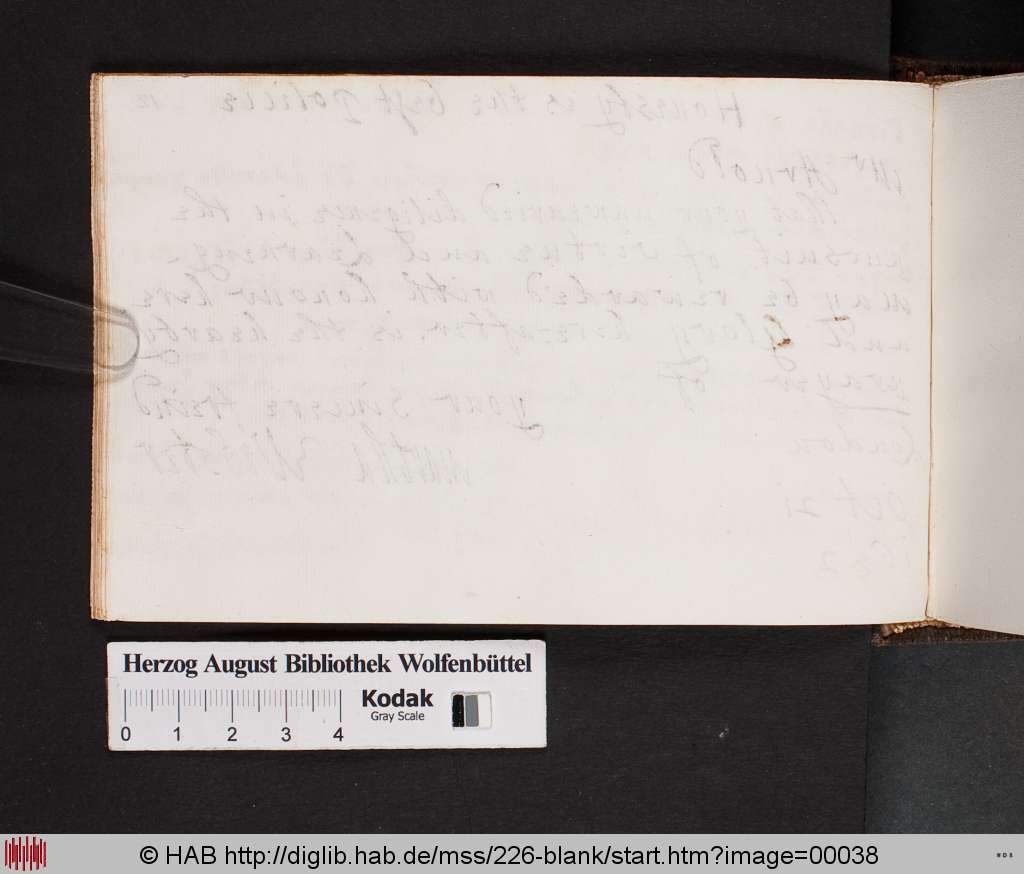 Honesty is the best Policie
Mr Arnold
That your unwearied diligence in the
pursuit of virtue and Learning
may be rewarded with honour here
and Glory hereafter, is the hearty
prayer of
your sincere freind
London
Oct 21
Herzog August Bibliothek Wolfenbüttel
Kodak
Gray Scale
0 1 2 3 4
© HAB http://diglib.hab.de/mss/226-blank/start.htm?image=00038